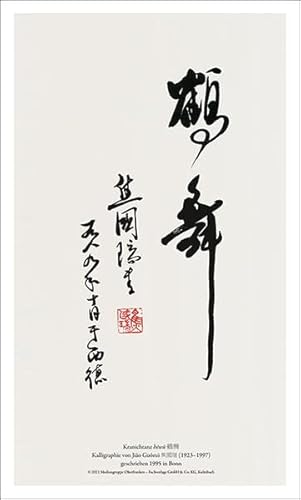 鶴舞
焦國瑞書
一九八九年十月于西德
Kranichtanz hèwǔ 鶴舞
Kalligraphie von Jiāo Guóruì 焦國瑞 (1923–1997)
geschrieben 1995 in Bonn
Mediengruppe Oberfranken – Fachverlage GmbH & Co. KG, Kulmbach